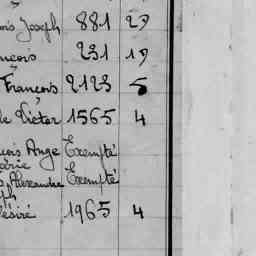 ois Joseph 881 29
ançois 231 19
François 2123 5
le Victor 1565 4
çois Ange Exempté
érie
s Alexandre Exempté
ph
Désiré 1965 4